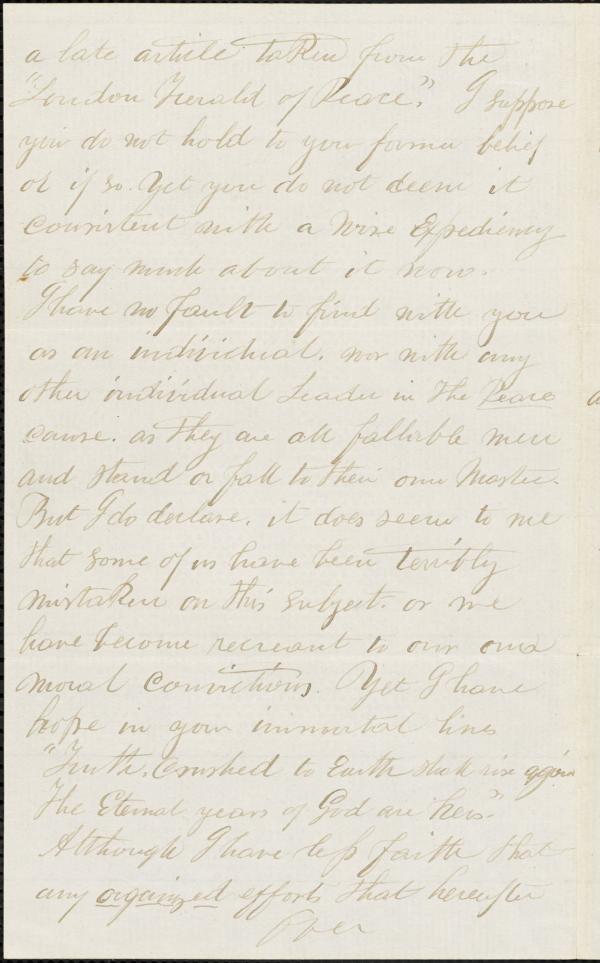 a late article taken from the
"London Herald of Peace". I suppose
you do not hold to your former belief
or if so. Yet you do not deem it
consistent with a Wise Expediency
to say much about it now.
I have no fault to find with you
as an individual. nor with any
other individual Leader in the Peace
cause. as they are all fallible men
and stand or fall to their own Master.
But I do declare. it does seem to me
that some of us have been terribly
mistaken on this subject. or we
have become recreant to our own
moral convictions. Yet I have
hope in your immortal lines
"Truth. Crushed to Earth shall rise again
The Eternal years of God are hers."
Although I have less faith that
any organized efforts that hereafter
Over